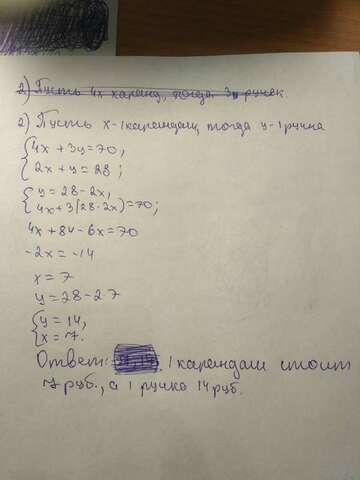 2) Пусть 4x каранд., тогда 3y ручек.
2) Пусть x-1карандаш, тогда y-1ручка
{4x+3y=70,
2x+y=28;
{y=28-2x,
4x+3(28-2x)=70;
4x+84-6x=70
-2x=-14
x=7
y=28-2·7
{y=14,
x=7.
Ответ: 1 карандаш стоит
7 руб., а 1 ручка 14 руб.